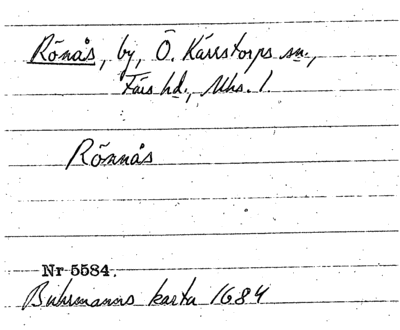 Rönås, by, Ö. Kärrstorps sn.,
Färs hd., Mhs. l.
Rönnås
Nr 5584.
Buhrmanns karta 1684